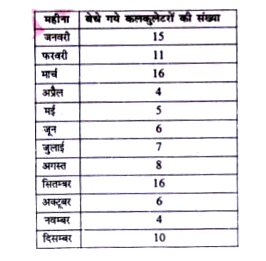 महीना बेचे गये कलकुलेटरों की संख्या
जनवरी 15
फरवरी 11
मार्च 16
अप्रैल 4
मई 5
जून 6
जुलाई 7
अगस्त 8
सितम्बर 16
अक्टूबर 6
नवम्बर 4
दिसम्बर 10